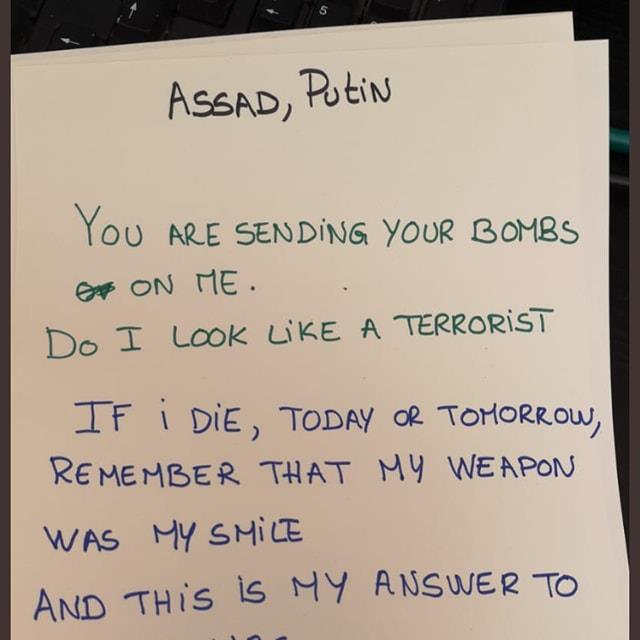 ASSAD, PUTIN
YOU ARE SENDING YOUR BOMBS
ON ME.
DO I LOOK LIKE A TERRORIST
IF i DIE, TODAY OR TOMORROW,
REMEMBER THAT MY WEAPON
WAS MY SMILE
AND THIS IS MY ANSWER TO